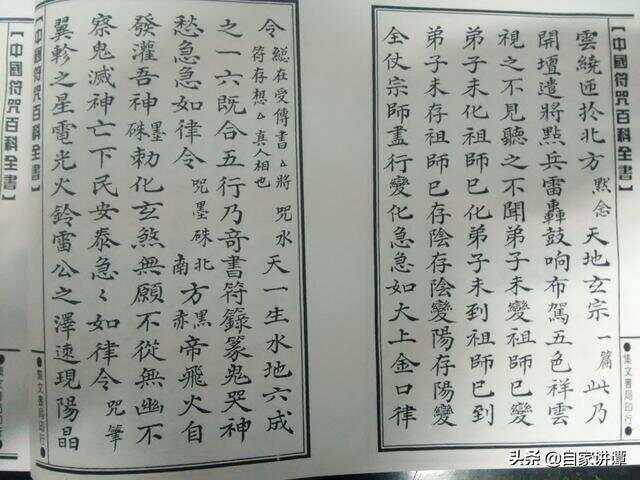 【中國符咒百科全書】
●集文書局印行●
雲繞迊於北方 默念 天地玄宗 一篇 此乃
開壇遣將點兵雷轟鼓响布駕五色祥雲
視之不見聽之不聞弟子未變祖師已變
弟子未化祖師已化弟子未到祖師已到
弟子未存祖師已存陰存陰變陽存陽變
全仗宗師盡行變化急急如大上金口律
令 總在受傳書ㄥ將符存想ㄥ真人相也 咒水 天一生水地六成
之一六既合五行乃奇書符籙篆鬼哭神
愁急急如律令 咒墨硃 北南方黑赤帝飛火自
發灌吾神 墨硃 勅化玄煞無願不從無幽不
察鬼滅神亡下民安泰急々如律令 咒筆
翼軫之星電光火鈴雷公之澤速現陽晶
【中國符咒百科全書】
●集文書局印行●
中國符咒百科全書】
●集文書局印行●
头条 @自家讲谭